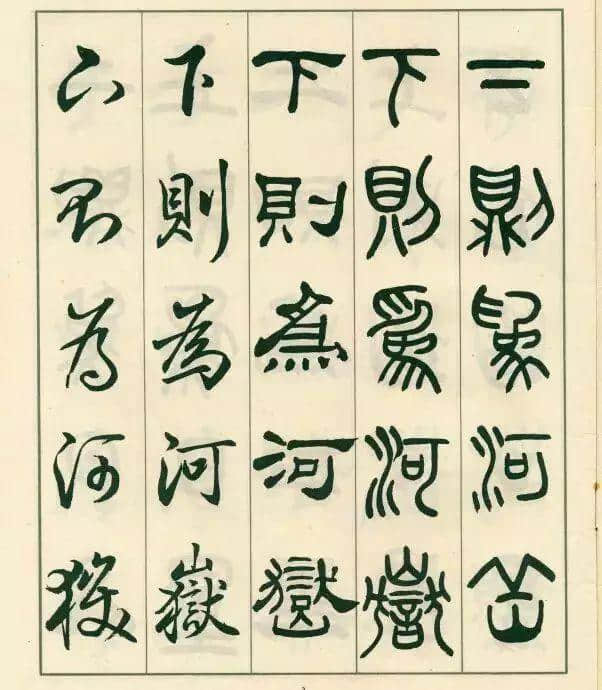 下則爲河岳
下則爲河嶽
下則為河嶽
下則為河嶽
下則為河嶽